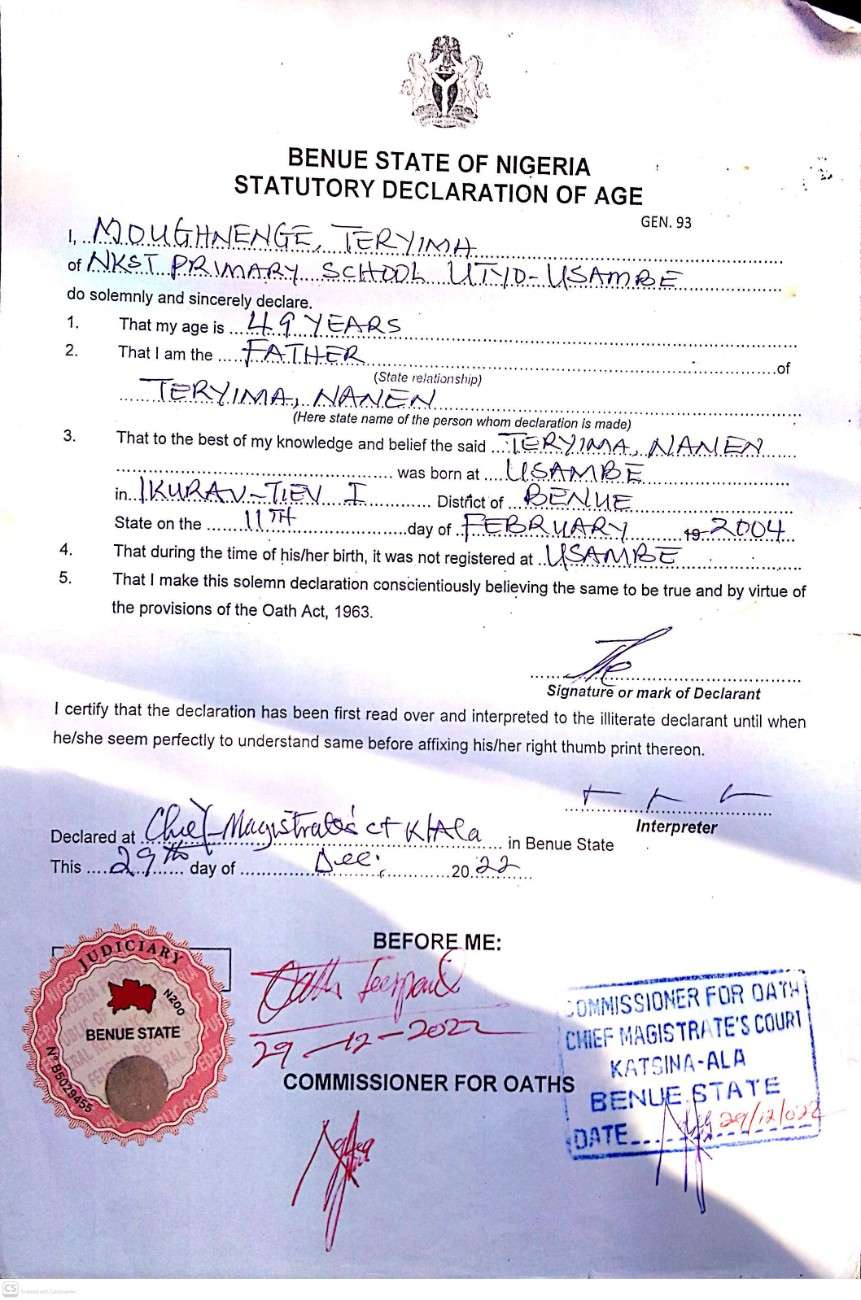 BENUE STATE OF NIGERIA
STATUTORY DECLARATION OF AGE
GEN. 93
I, MOUGHNENGE, TERYIMA
of NKST PRIMARY SCHOOL UTYO-USAMBE
do solemnly and sincerely declare.
1. That my age is 49 YEARS
2. That I am the FATHER of
(State relationship)
TERYIMA, NANEN
(Here state name of the person whom declaration is made)
3. That to the best of my knowledge and belief the said TERYIMA, NANEN
was born at USAMBE
in IKURAV-TIEV I District of BENUE
State on the 11TH day of FEBRUARY 19 2004
4. That during the time of his/her birth, it was not registered at USAMBE
5. That I make this solemn declaration conscientiously believing the same to be true and by virtue of
the provisions of the Oath Act, 1963.
Signature or mark of Declarant
I certify that the declaration has been first read over and interpreted to the illiterate declarant until when
he/she seem perfectly to understand same before affixing his/her right thumb print thereon.
Interpreter
Declared at Chief Magistrate's ct K/Ala in Benue State
This 29th day of Dec. 2022
BEFORE ME:
29-12-2022
COMMISSIONER FOR OATHS
JUDICIARY
N200
BENUE STATE
Nº B5029455
COMMISSIONER FOR OATH
CHIEF MAGISTRATE'S COURT
KATSINA-ALA
BENUE STATE
DATE 29/12/022
CS